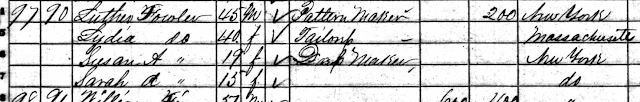 4 97 90 Luther Fowler 45 m ✓ Pattern Maker 200 New York
5 Lydia do 40 f ✓ Tailor Massachusetts
6 Susan A " 19 f ✓ Maker New York
7 Sarah A " 15 f ✓ do
8 98 91 "